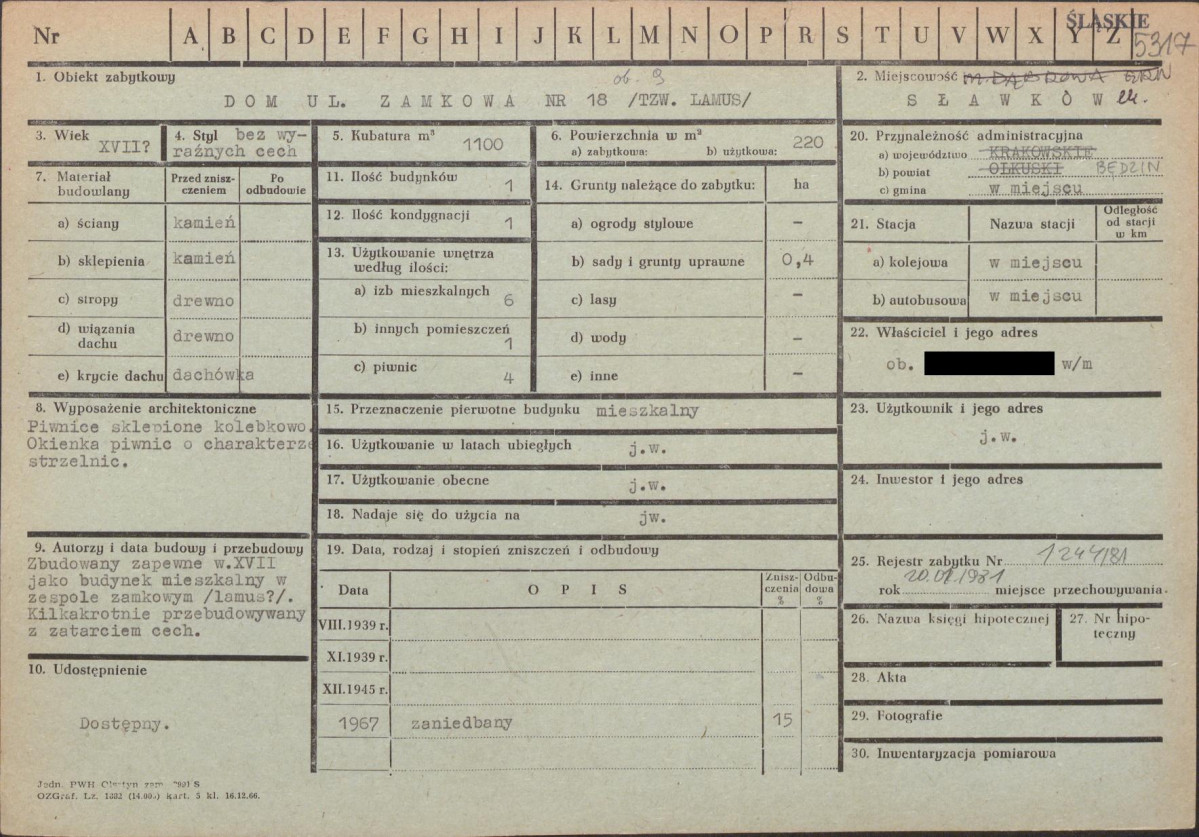 Nr A B C D E F G H I J K L M N O P R S T U V W X Y Z
ŚLĄSKIE
5317
1. Obiekt zabytkowy
ob. 9
DOM UL. ZAMKOWA NR 18 /TZW. LAMUS/
2. Miejscowość M. DĄBROWA GÓRN
SŁAWKÓW
3. Wiek
XVII?
4. Styl bez wy-
raźnych cech
5. Kubatura m³
1100
6. Powierzchnia w m²
a) zabytkowa: b) użytkowa: 220
7. Materiał
budowlany
Przed znisz-
czeniem
Po
odbudowie
a) ściany kamień
b) sklepienia kamień
c) stropy drewno
d) wiązania
dachu drewno
e) krycie dachu dachówka
8. Wyposażenie architektoniczne
Piwnice sklepione kolebkowo.
Okienka piwnic o charakterze
strzelnic.
9. Autorzy i data budowy i przebudowy
Zbudowany zapewne w.XVII
jako budynek mieszkalny w
zespole zamkowym /lamus?/.
Kilkakrotnie przebudowywany
z zatarciem cech.
10. Udostępnienie
Dostępny.
11. Ilość budynków 1
12. Ilość kondygnacji 1
13. Użytkowanie wnętrza
według ilości:
a) izb mieszkalnych 6
b) innych pomieszczeń
1
c) piwnic 4
14. Grunty należące do zabytku: ha
a) ogrody stylowe –
b) sady i grunty uprawne 0,4
c) lasy –
d) wody –
e) inne –
15. Przeznaczenie pierwotne budynku mieszkalny
16. Użytkowanie w latach ubiegłych j.w.
17. Użytkowanie obecne j.w.
18. Nadaje się do użycia na jw.
19. Data, rodzaj i stopień zniszczeń i odbudowy
Data O P I S Znisz-
czenia
% Odbu-
dowa
%
VIII.1939 r.
XI.1939 r.
XII.1945 r.
1967 zaniedbany 15
20. Przynależność administracyjna
a) województwo KRAKOWSKIE
b) powiat OLKUSKI BĘDZIN
c) gmina w miejscu
21. Stacja Nazwa stacji Odległość
od stacji
w km
a) kolejowa w miejscu
b) autobusowa w miejscu
22. Właściciel i jego adres
ob. w/m
23. Użytkownik i jego adres
j.w.
24. Inwestor i jego adres
25. Rejestr zabytku Nr 1244/81
rok 20.01.1981 miejsce przechowywania
26. Nazwa księgi hipotecznej
27. Nr hipo-
teczny
28. Akta
29. Fotografie
30. Inwentaryzacja pomiarowa
Jedn. PWH Olsztyn zam.
OZGraf. Lz. 1882 (14.000) kart. 5 kl. 16.12.66.